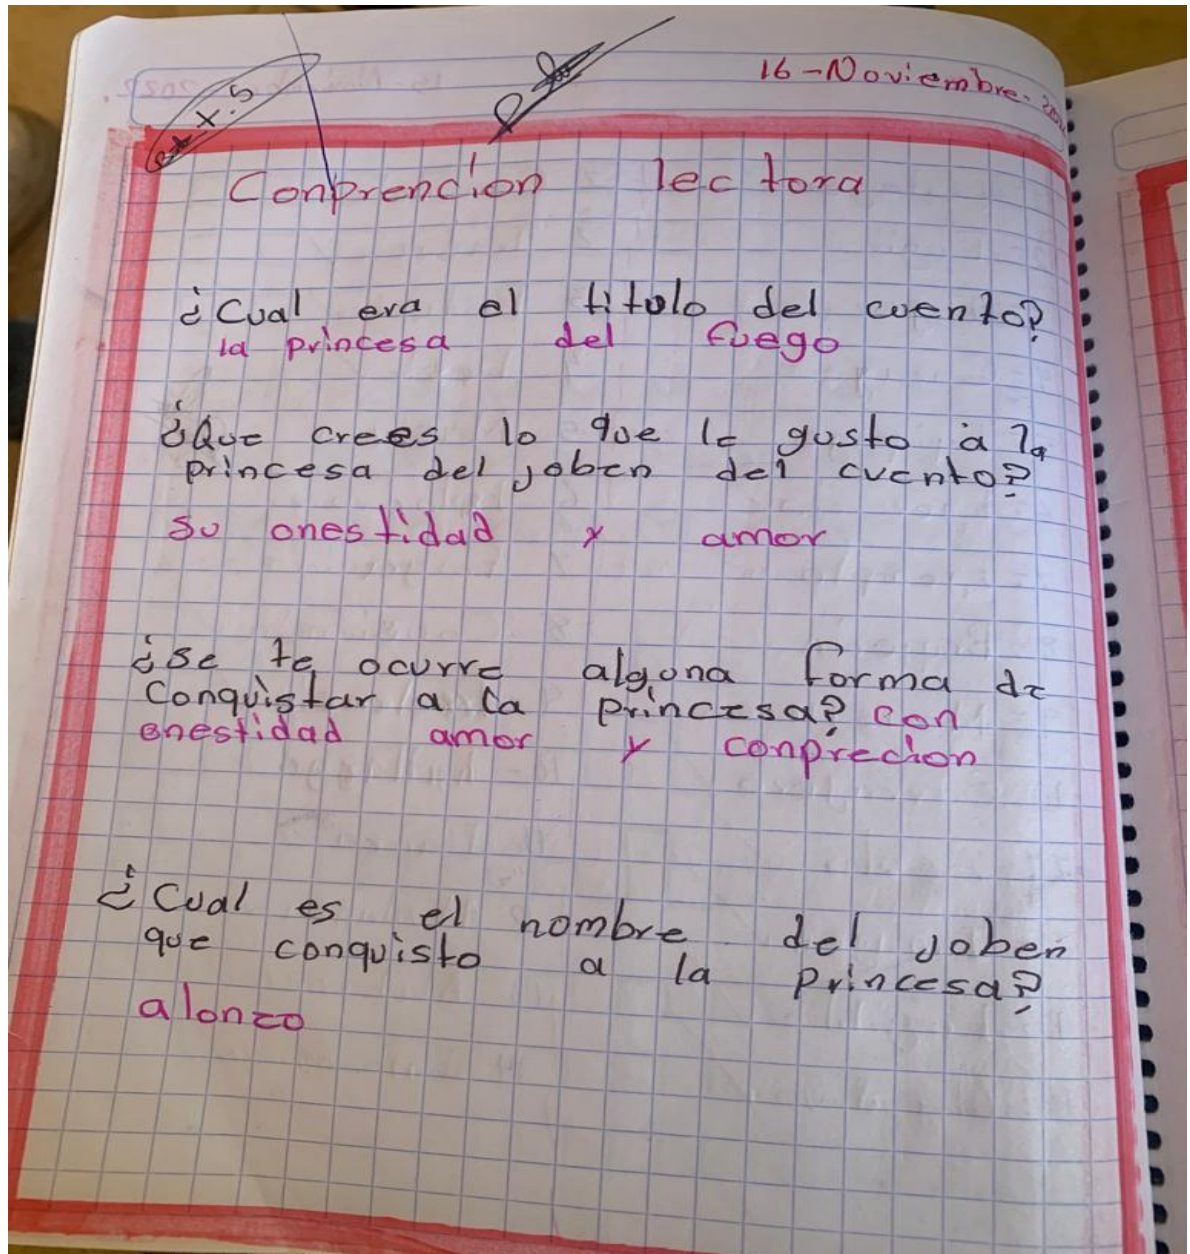 16-Noviembre-
Conprencion lectora
¿Cual era el titulo del cuento?
la princesa del fuego
¿Que crees lo que le gusto a la
princesa del joben del cuento?
su onestidad y amor
¿se te ocurre alguna forma de
Conquistar a la princesa? con
onestidad amor y conprecion
¿Cual es el nombre del joben
que conquisto a la princesa?
alonzo